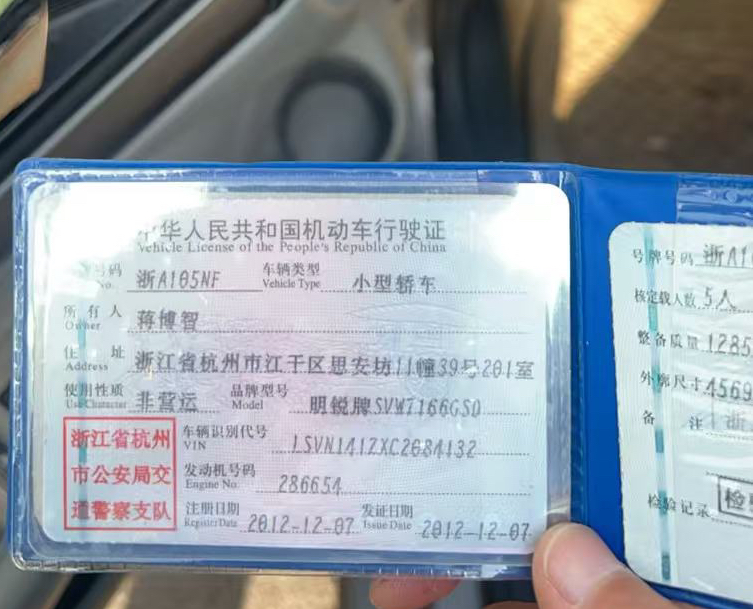 中华人民共和国机动车行驶证
Vehicle License of the People's Republic of China
号码 浙A105NF 车辆类型 小型轿车
No. Vehicle Type
所有人 蒋博智
Owner
住址 浙江省杭州市江干区思安坊11幢39号201室
Address
使用性质 非营运 品牌型号 明锐牌SVW7166GSD
Use Character Model
浙江省杭州
市公安局交
通警察支队
车辆识别代号 LSVN141ZXC2684132
VIN
发动机号码 286654
Engine No.
注册日期 2012-12-07 发证日期 2012-12-07
Register Date Issue Date
号牌号码 浙A1
核定载人数 5人
整备质量 1285
外廓尺寸 4569
备注
检验记录 检